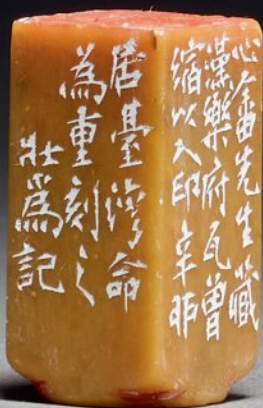 心畬先生藏
漢樂府瓦曾
縮以入印辛卯
居臺灣命
為重刻之
壯為記